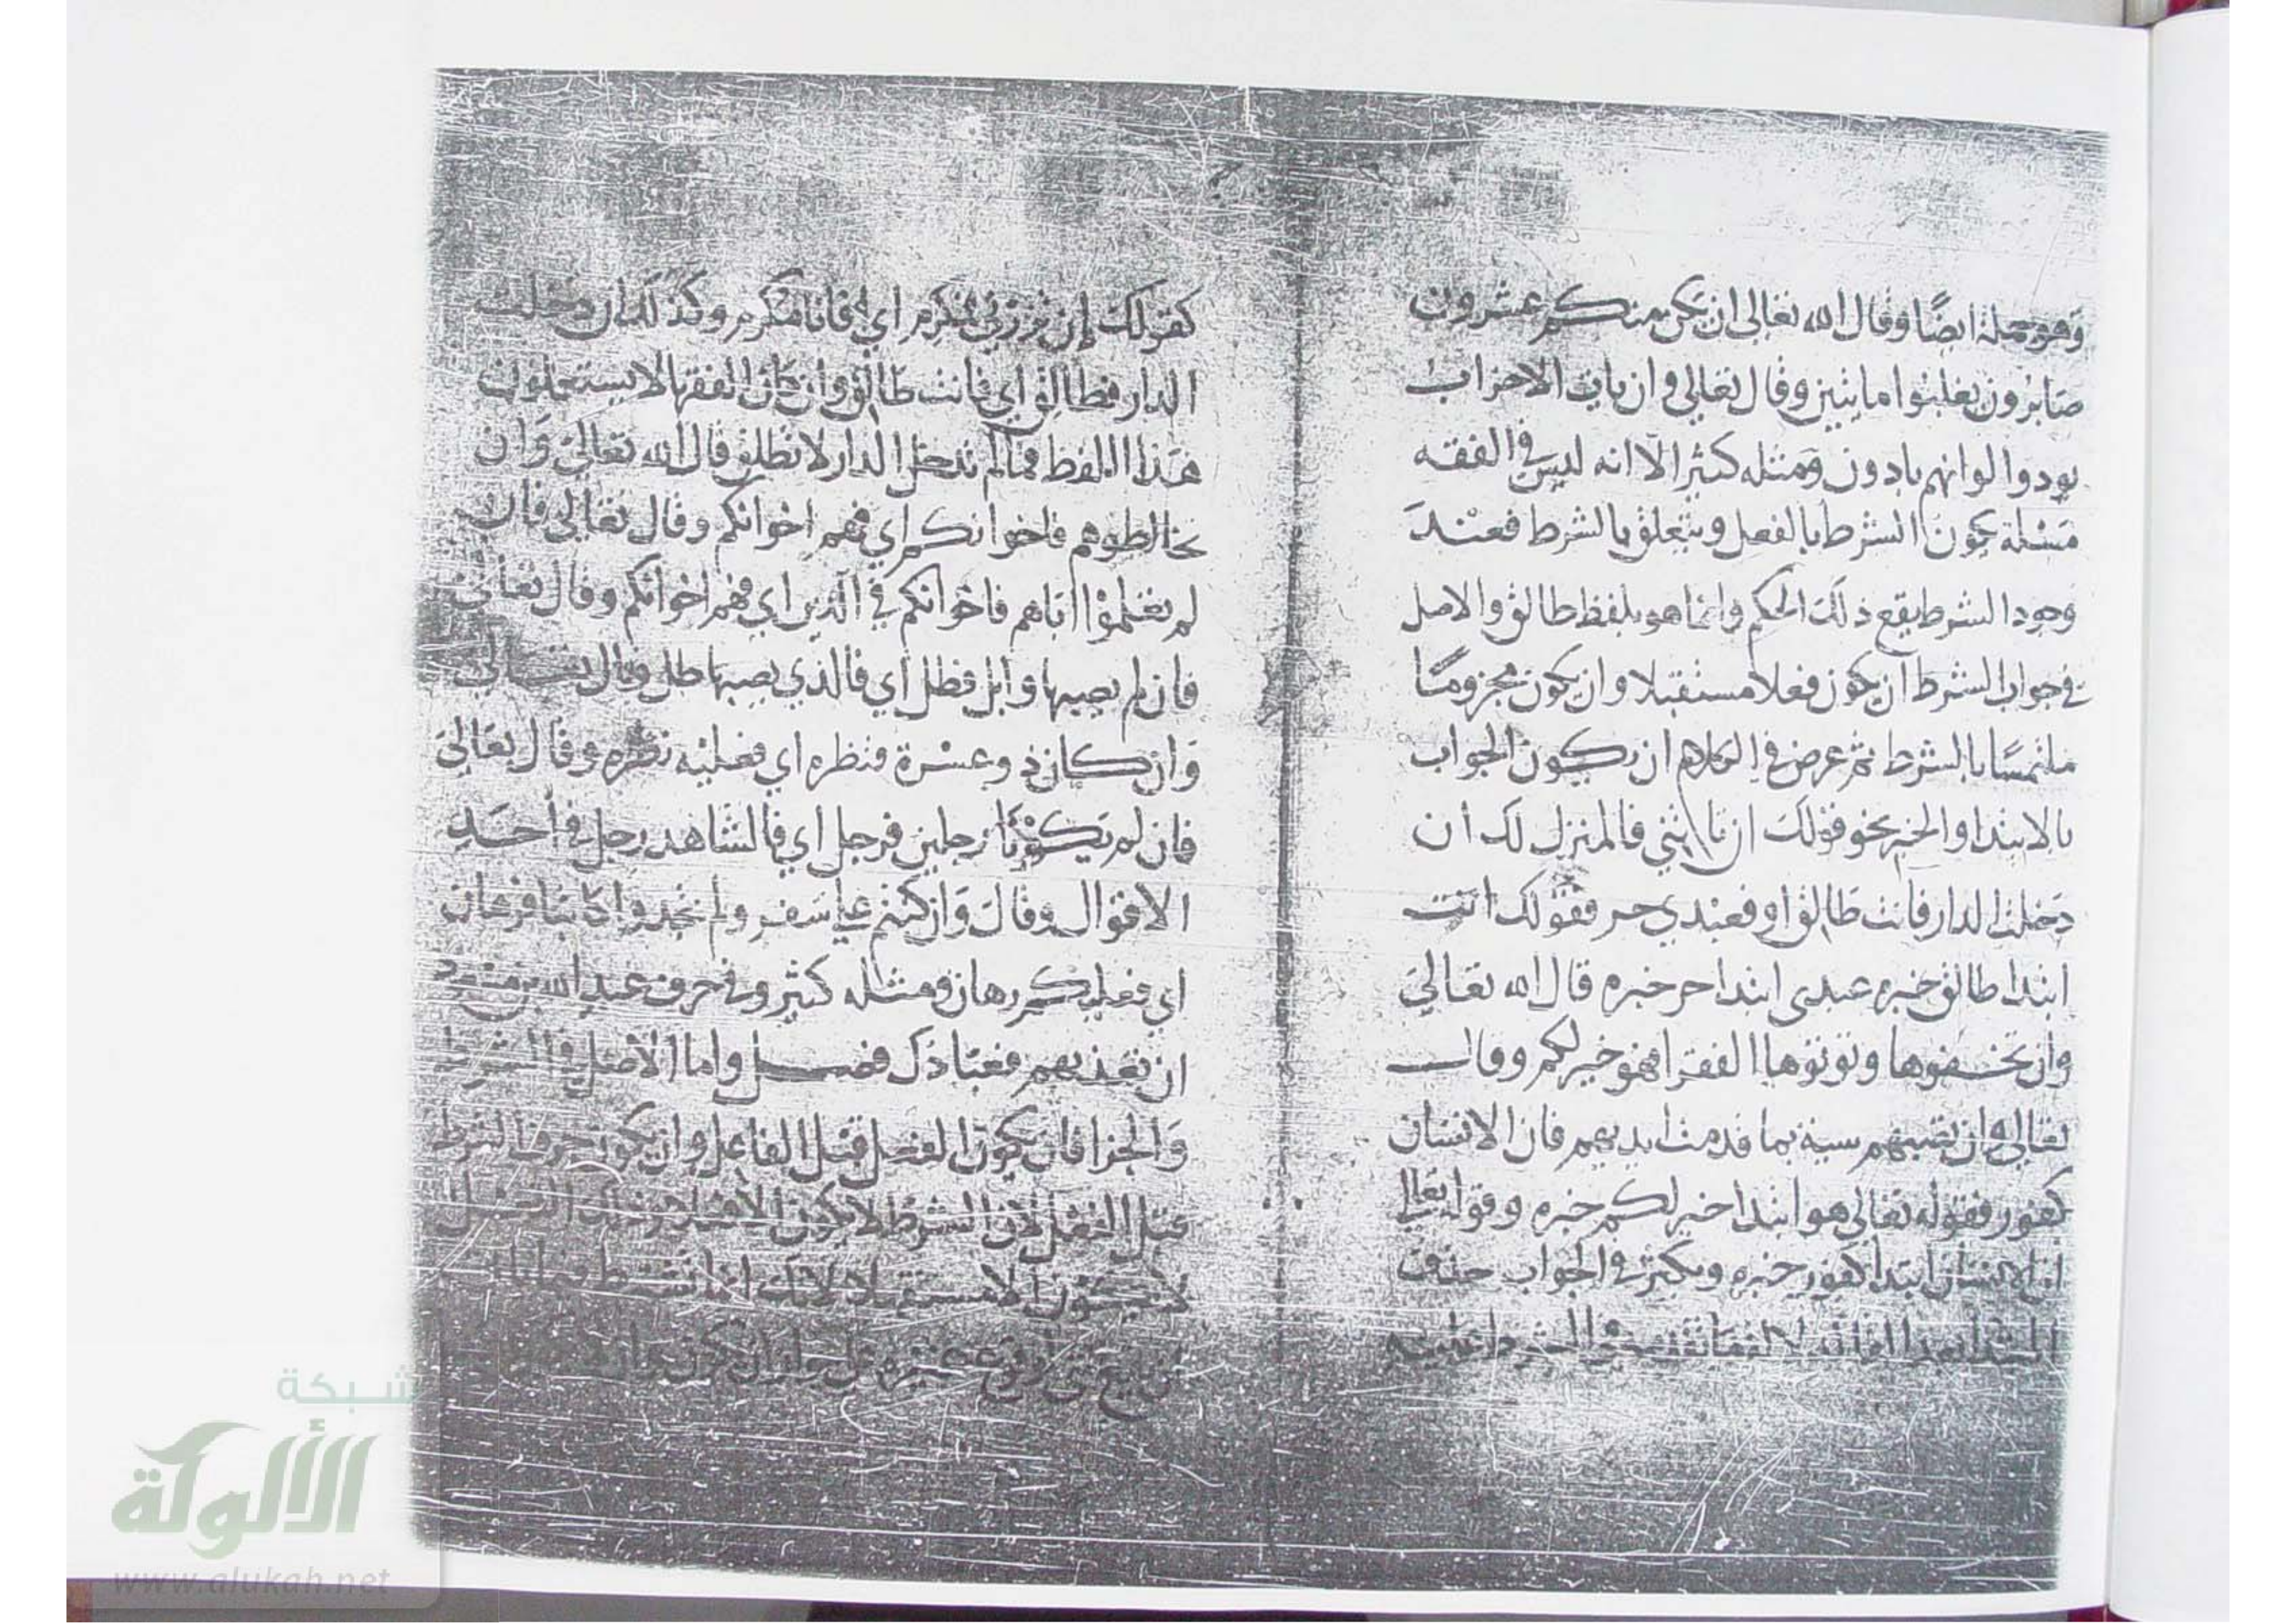 وهو جملة ايضًا وقال الله تعالى ان يكن منكم عشرون
صابرون يغلبوا مايتين وقال تعالى وان يات الاحزاب
يودوا لو انهم بادون ومثله كثير الا انه ليس في الفقه
مسئلة يكون الشرط بالفعل ويتعلق بالشرط فعند
وجود الشرط يقع ذلك الحكم وانما هو بلفظ طالق والاصل
في جواب الشرط ان يكون فعلا مستقبلا وان يكون مجزومًا
ملتمسًا بالشرط ثم عرض في الكلام ان يكون الجواب
بالابتدا والخبر نحو قولك ان تاتني فالمنزل لك ان
دخلت الدار فانت طالق او فعبدي حر فقولك انت
ابتدا طالق خبره عبدي ابتدا حر خبره قال الله تعالى
وان تخفوها وتوتوها الفقرا فهو خير لكم وقال
تعالى وان تصبهم سيئة بما قدمت ايديهم فان الانسان
كفور فقوله تعالى هو ابتدا خير لكم خبره وقوله تعالى
ان الانسان ابتدا كفور خبره ويكثر في الجواب حذف
المبتدا بعد الفا
كقولك ان تزرني فمكرم اي فانا مكرم وكذلك ان دخلت
الدار فطالق اي فانت طالق وان كان الفقها لا يستعملون
هذا اللفظ فما لم تدخل الدار لا تطلق قال الله تعالى وان
تخالطوهم فاخوانكم اي فهم اخوانكم وقال تعالى فان
لم تعلموا اباهم فاخوانكم في الدين اي فهم اخوانكم وقال تعالى
فان لم يصبها وابل فطل اي فالذي يصيبها طل وقال تعالى
وان كان ذو عسرة فنظرة اي فعليه نظرة وقال تعالى
فان لم يكونا رجلين فرجل اي فالشاهد رجل في احد
الاقوال وقال وان كنتم على سفر ولم تجدوا كاتبا فرهان
اي فعليكم رهان ومثله كثير وفي حرف عبد الله بن مسعود
ان تعذبهم فعبادك فصل واما الاصل في الشرط
والجزا فان يكون الفعل قبل الفاعل وان يكون حرف الشرط
قبل الفعل لان الشرط لا يكون الا
لا يكون الا مستقبلا لانك انما تشترط